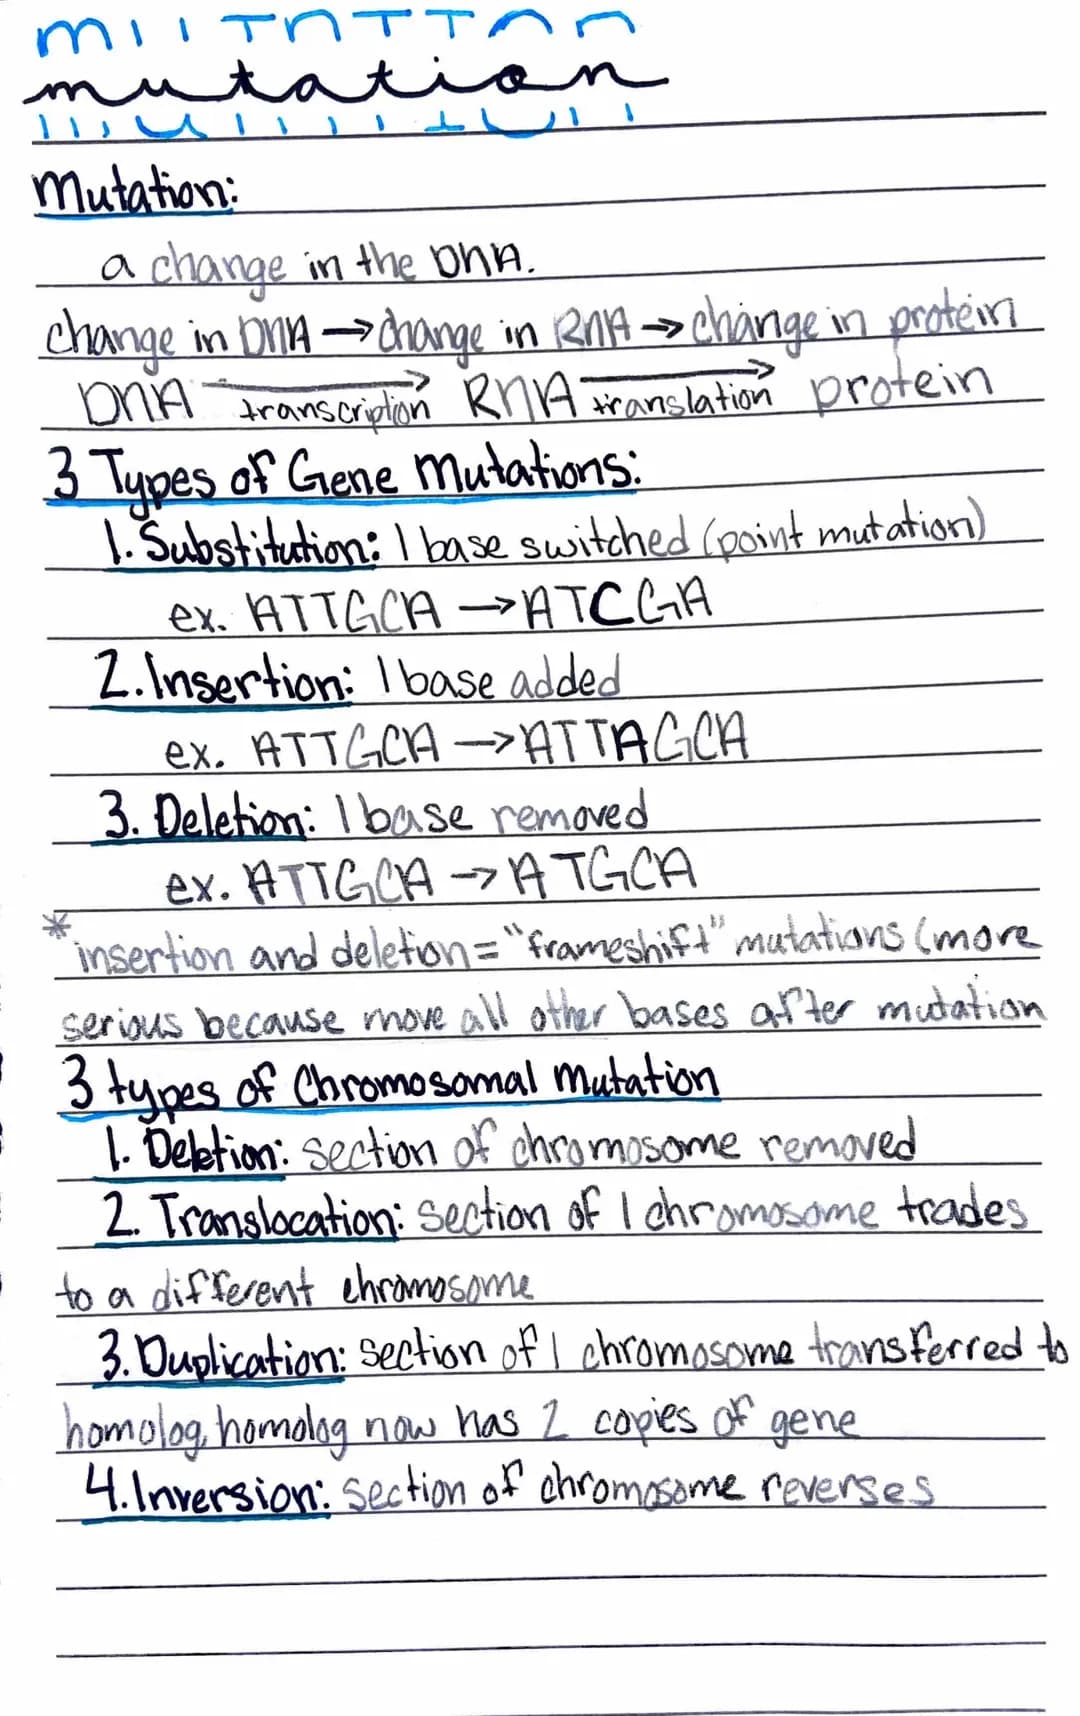 MUTATION
mutation
Mutation:
a change in the DNA.
change in DNA → change in RNA → change in protein
DNA → transcription RNA → translation protein
3 Types of Gene Mutations:
1. Substitution: 1 base switched (point mutation)
ex. ATTGCA → ATCGA
2. Insertion: 1 base added
ex. ATTGCA → ATTAGCA
3. Deletion: 1 base removed
ex. ATTGCA → ATGCA
* insertion and deletion = "frameshift" mutations (more
serious because move all other bases after mutation
3 types of Chromosomal Mutation
1. Deletion: section of chromosome removed
2. Translocation: section of 1 chromosome trades
to a different chromosome
3. Duplication: section of 1 chromosome transferred to
homolog, homolog now has 2 copies of gene
4. Inversion: section of chromosome reverses